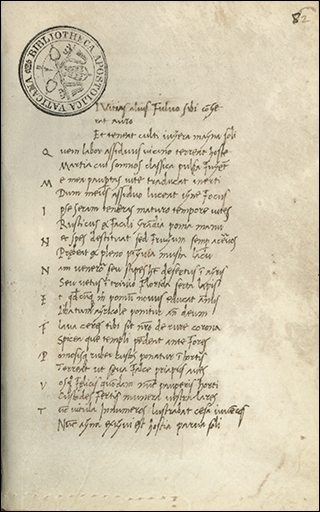 82
BIBLIOTHECA APOSTOLICA VATICANA
Ivitias alius Fulvo sibi cōge
rat auro
Et teneat culti iugera magna soli
Q uem labor assiduus vicino terreat hoste
Martia cui somnos classica pulsa fugent
M e mea paupertas vite traducat inerti
Dum meus assiduo luceat igne focus
I pse seram teneras maturo tempore vites
Rusticus & facili grandia poma manu
N ec spes destituat sed frugum semp acervos
Prebeat & pleno pinguia musta lacu
N am veneror seu stipes h&t desertus ī agris
Seu vetus ī trivio florida serta lapis
E t pomum novus educat annus
Libatum agricole ponitur deum
F lava ceres tibi sit nr̄o de rure corona
Spicea que templi pendeat ante fores
P omosisque ruber custos ponatur ī hortis
Terreat ut seva falce priapus aves
V osque felicis quondam nunc pauperis horti
Custodes fertis munera lares
T unc vitula innumeros lustrabat cesa iuvencos
Nunc agna exigui est hostia parva soli